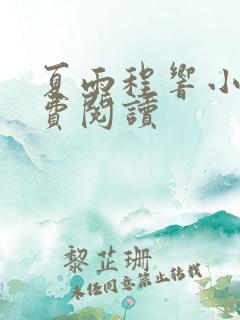 夏雨程響小
費閱讀
黎芷珊
未经同意禁止转载